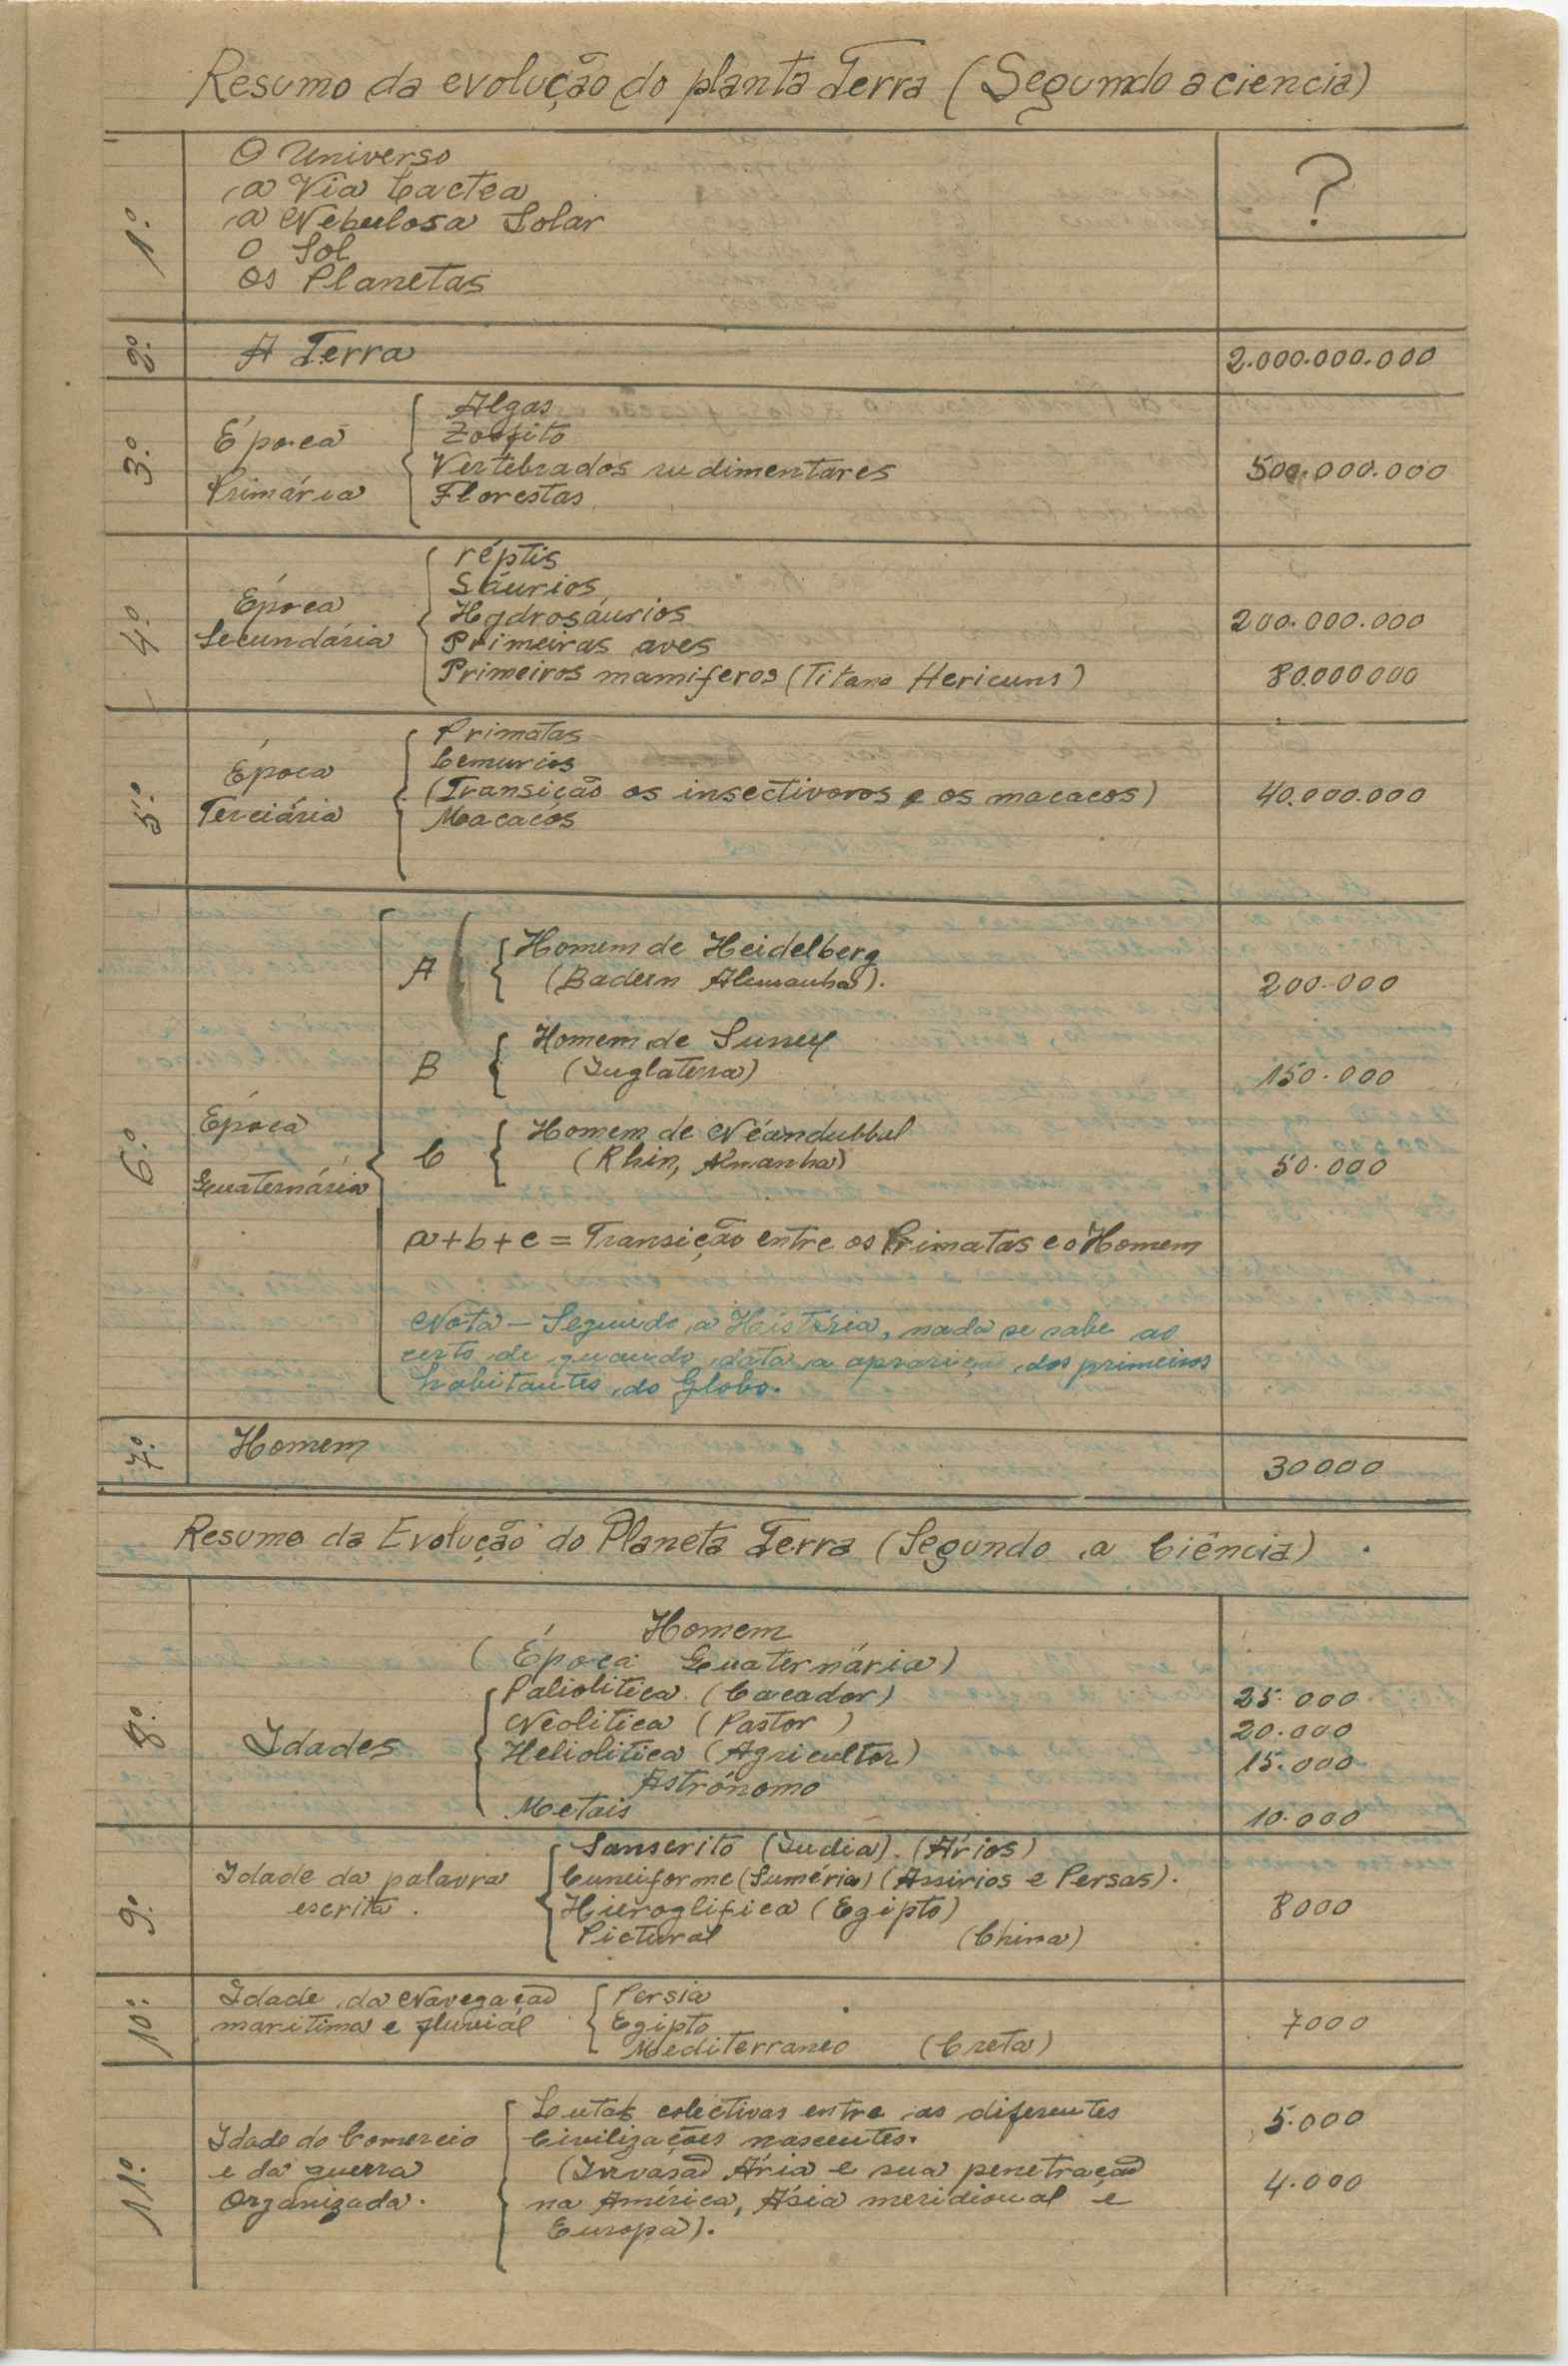 Resumo da evolução do planta Terra (Segundo a ciencia)
1.º
O Universo
a Via Lactea
a Nebulosa Solar
O Sol
Os Planetas
?
2.º
A Terra
2.000.000.000
3.º
Época
Primária
Algas
Zoófito
Vertebrados rudimentares
Florestas
500.000.000
4.º
Época
Secundária
réptis
Sáurios
Hydrosáurios
Primeiras aves
Primeiros mamiferos (Titano Hericuns)
200.000.000
80.000000
5.º
Época
Terciária
Primatas
Lemurios
(Transição os insectivoros e os macacos)
Macacos
40.000.000
6.º
Época
Quaternária
A
Homem de Heidelberg
(Badern Alemanha).
200.000
B
Homem de Surrey
(Inglaterra)
150.000
C
Homem de Néandubbul
(Rhin, Almanha)
50.000
a+b+c = Transição entre os Primatas e o Homem
Nota — Segundo a História, nada se sabe ao
certo de quando data a aparição dos primeiros
habitantes do Globo.
7.º
Homem
30000
Resumo da Evolução do Planeta Terra (Segundo a Ciência)
Homem
(Época Quaternária)
8.º
Idades
Paliolitica (Cacador)
25.000
Neolitica (Pastor)
20.000
Heliolitica (Agricultor)
15.000
Astrónomo
Metais
10.000
9.º
Idade da palavra
escrita.
Sanscrito (India). (Ários)
Cuneiforme (Suméria) (Assirios e Persas).
Hieroglifica (Egipto)
Pictural (China)
8000
10.º
Idade da Navegação
maritima e fluvial
Persia
Egipto
Mediterraneo (Creta)
7000
11.º
Idade do Comercio
e da guerra
Organizada.
Lutas colectivas entre as diferentes
Civilizações nascentes.
(Invasão Ária e sua penetração
na América, Ásia meridional e
Europa).
5.000
4.000